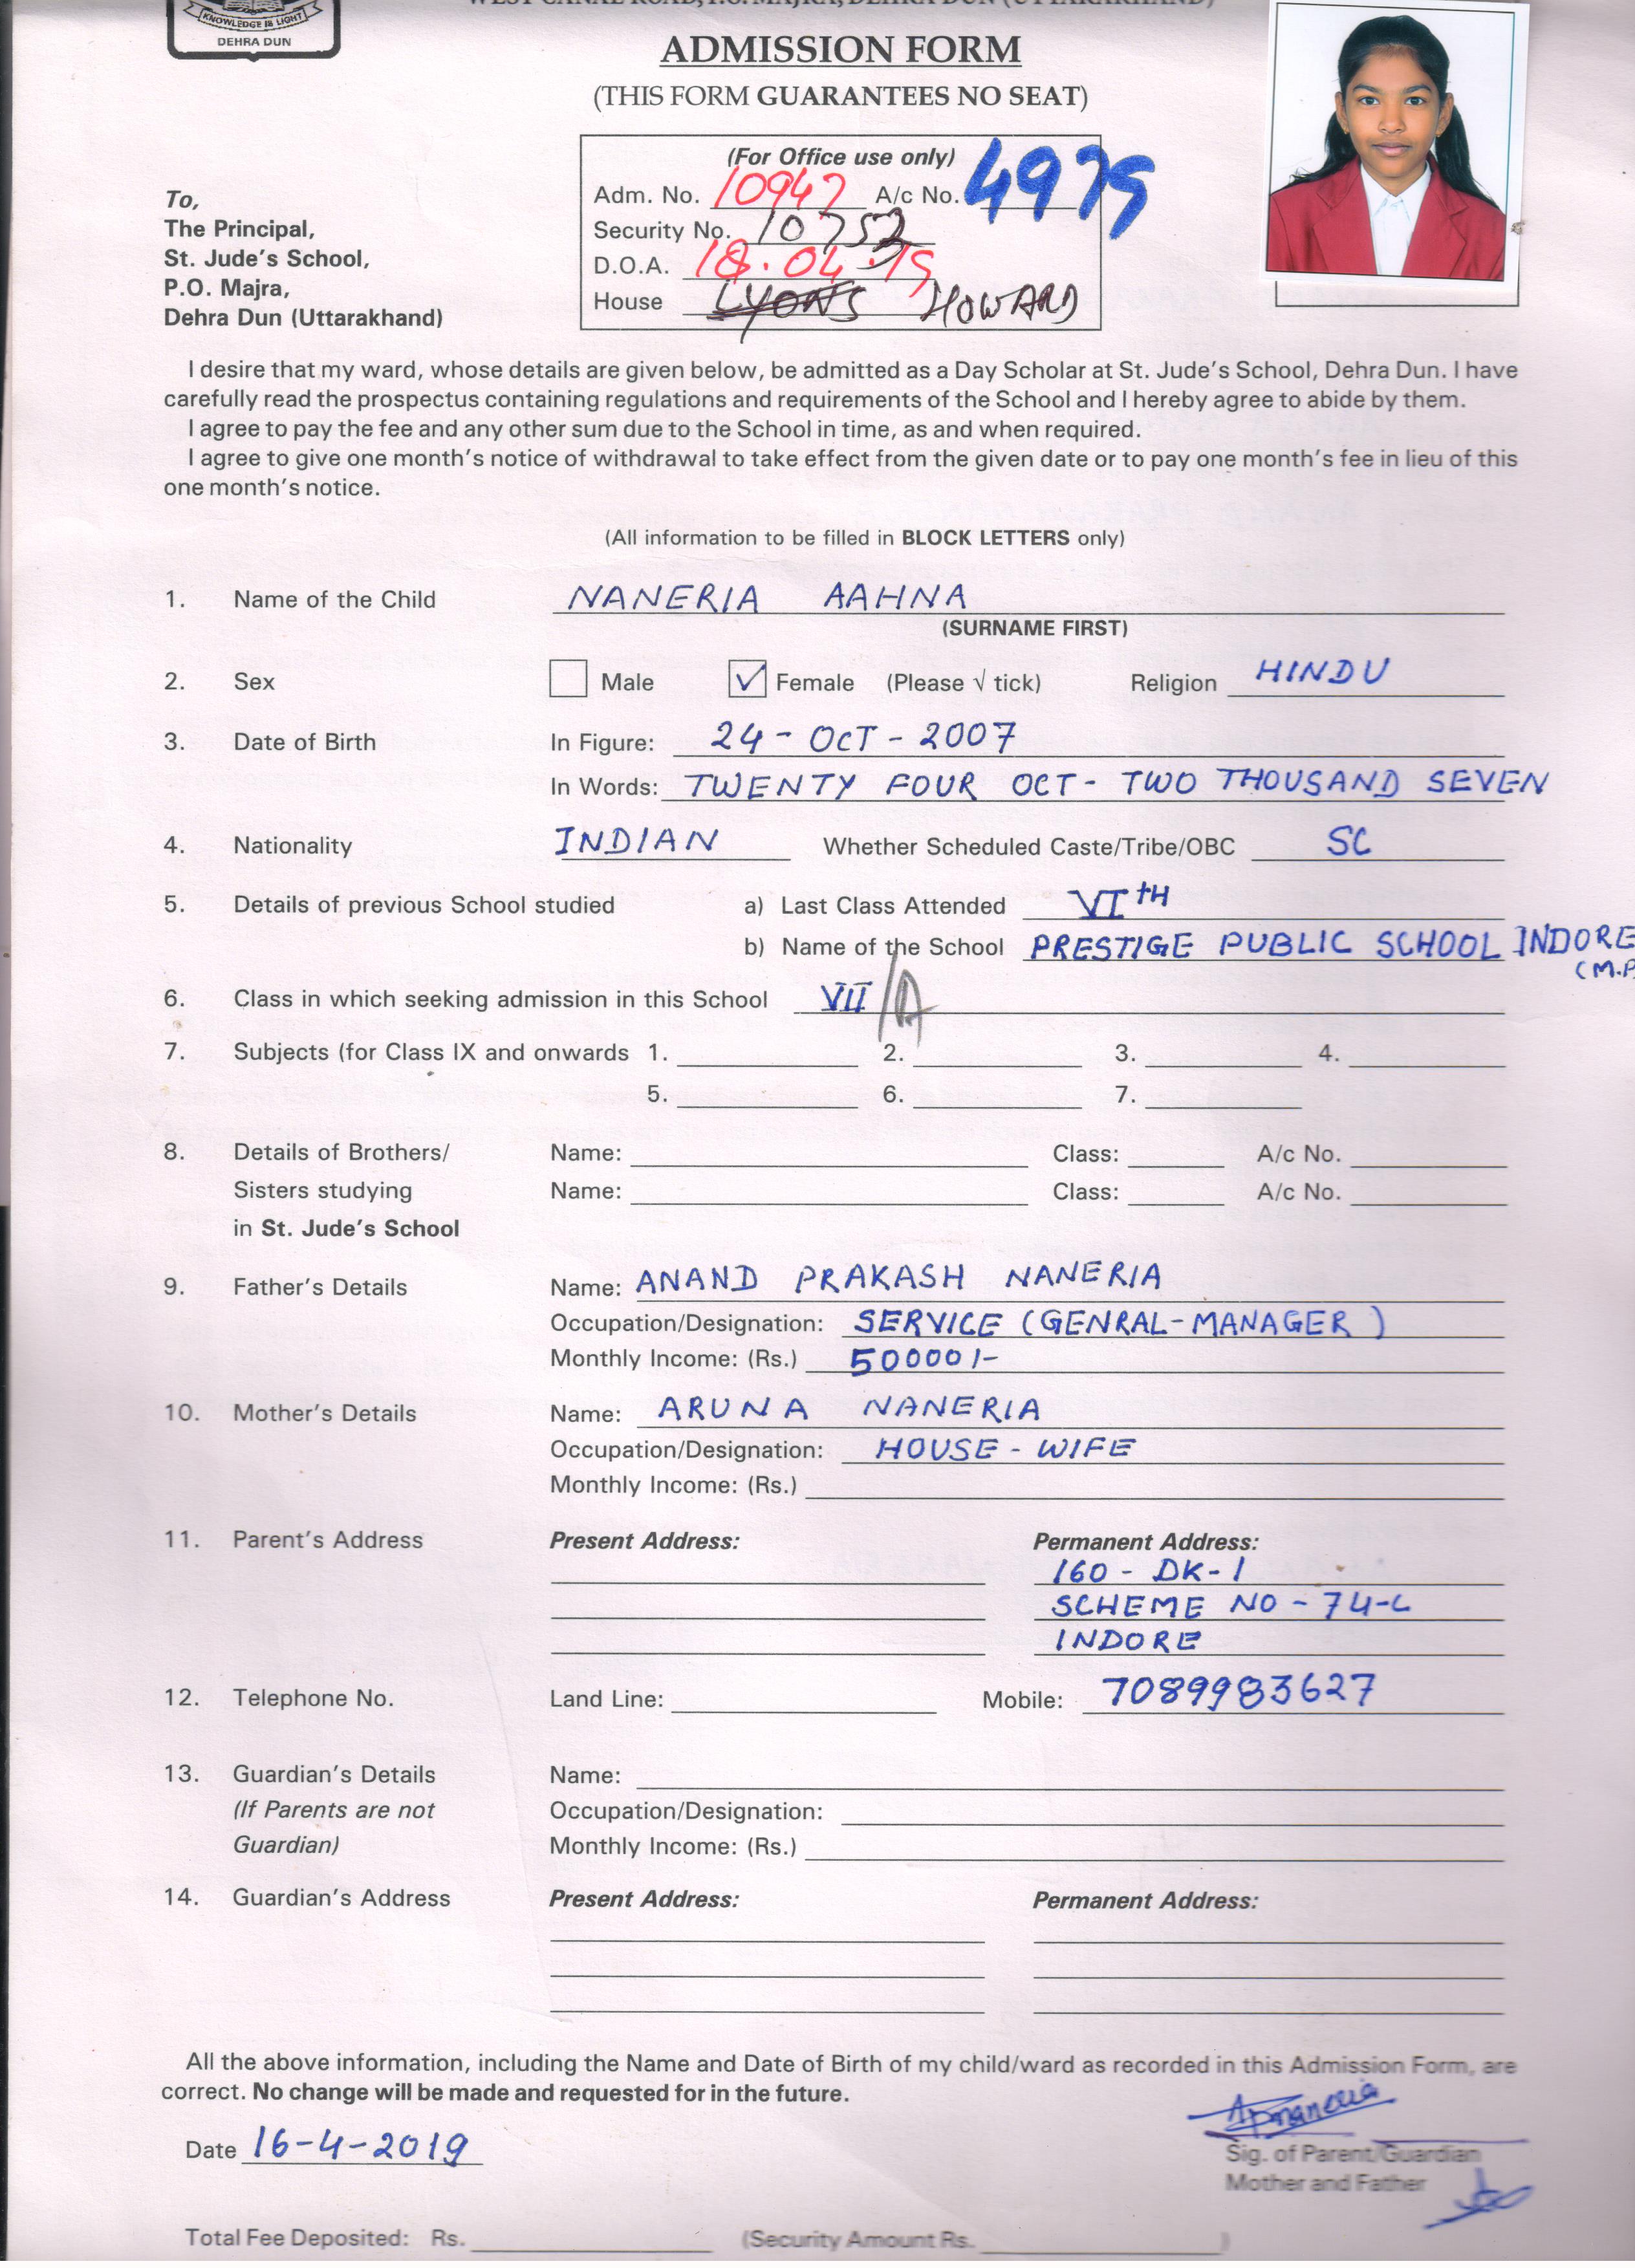 KNOWLEDGE IS LIGHT
DEHRA DUN
WEST CANAL ROAD, P.O. MAJRA, DEHRA DUN (UTTARAKHAND)
ADMISSION FORM
(THIS FORM GUARANTEES NO SEAT)
(For Office use only)
Adm. No. 10947 A/c No. 4979
Security No. 10752
D.O.A. 18.04.19
House LYONS HOWARD
To,
The Principal,
St. Jude's School,
P.O. Majra,
Dehra Dun (Uttarakhand)
I desire that my ward, whose details are given below, be admitted as a Day Scholar at St. Jude's School, Dehra Dun. I have
carefully read the prospectus containing regulations and requirements of the School and I hereby agree to abide by them.
I agree to pay the fee and any other sum due to the School in time, as and when required.
I agree to give one month's notice of withdrawal to take effect from the given date or to pay one month's fee in lieu of this
one month's notice.
(All information to be filled in BLOCK LETTERS only)
1. Name of the Child NANERIA AAHNA
(SURNAME FIRST)
2. Sex Male ✓ Female (Please √ tick) Religion HINDU
3. Date of Birth In Figure: 24 - OCT - 2007
In Words: TWENTY FOUR OCT - TWO THOUSAND SEVEN
4. Nationality INDIAN Whether Scheduled Caste/Tribe/OBC SC
5. Details of previous School studied a) Last Class Attended VI TH
b) Name of the School PRESTIGE PUBLIC SCHOOL INDORE
(M.P
6. Class in which seeking admission in this School VII /A
7. Subjects (for Class IX and onwards 1. 2. 3. 4.
5. 6. 7.
8. Details of Brothers/ Name: Class: A/c No.
Sisters studying Name: Class: A/c No.
in St. Jude's School
9. Father's Details Name: ANAND PRAKASH NANERIA
Occupation/Designation: SERVICE (GENRAL-MANAGER)
Monthly Income: (Rs.) 50000/-
10. Mother's Details Name: ARUNA NANERIA
Occupation/Designation: HOUSE - WIFE
Monthly Income: (Rs.)
11. Parent's Address Present Address: Permanent Address:
160 - DK-1
SCHEME NO - 74-C
INDORE
12. Telephone No. Land Line: Mobile: 7089983627
13. Guardian's Details Name:
(If Parents are not Occupation/Designation:
Guardian) Monthly Income: (Rs.)
14. Guardian's Address Present Address: Permanent Address:
All the above information, including the Name and Date of Birth of my child/ward as recorded in this Admission Form, are
correct. No change will be made and requested for in the future.
Apnaneria
Date 16-4-2019
Sig. of Parent/Guardian
Mother and Father
Total Fee Deposited: Rs. (Security Amount Rs. )